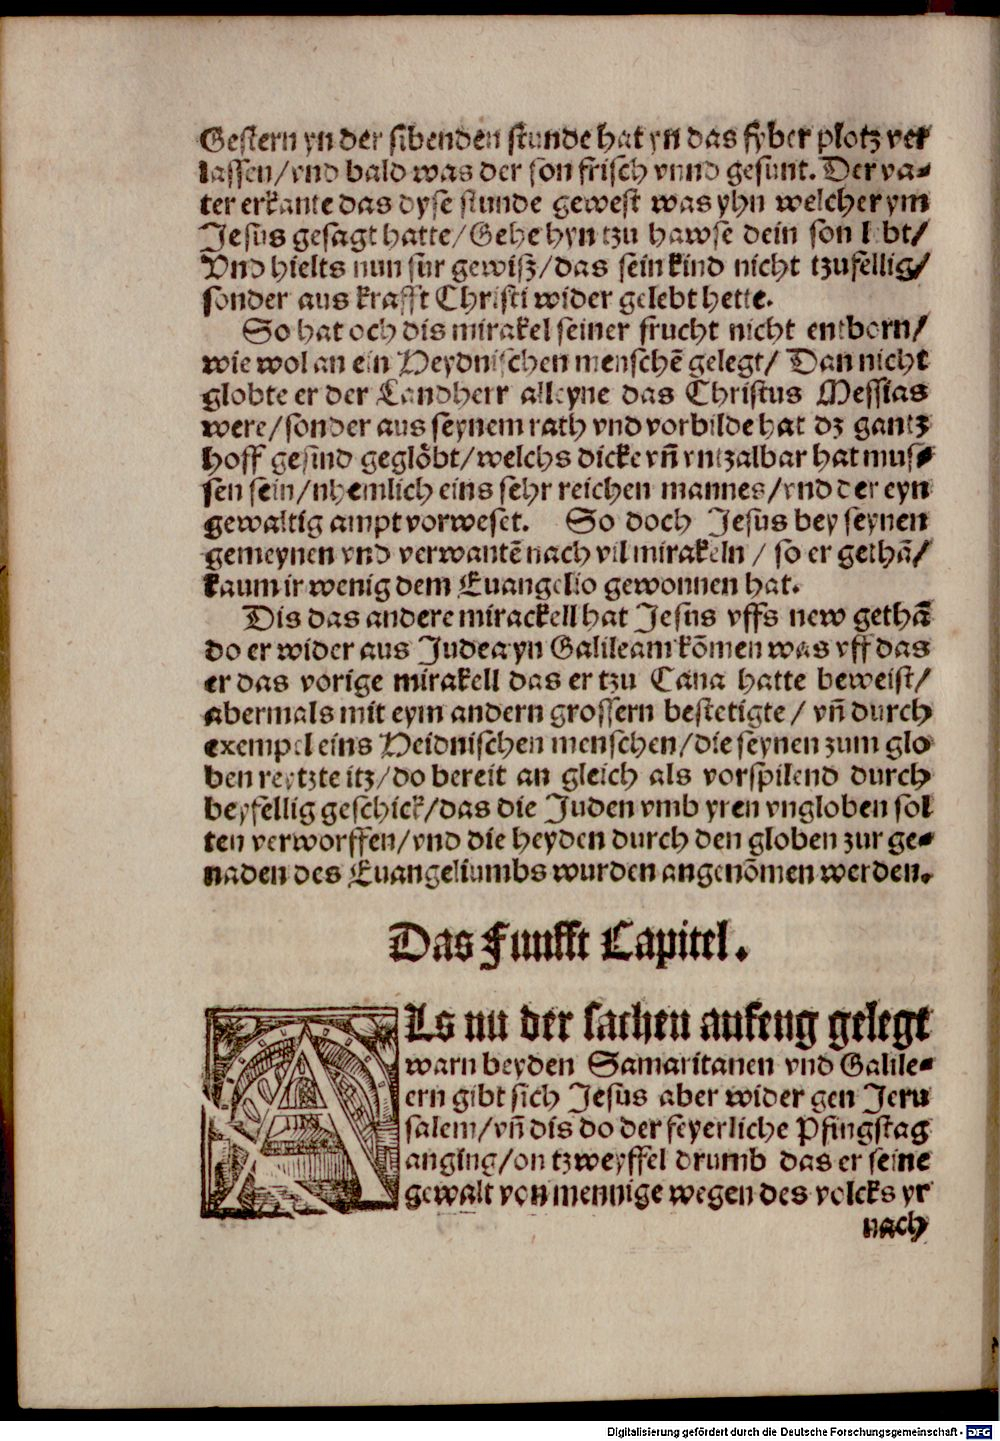 Gestern yn der sibenden stunde hat yn das fyber plotz ver
lassen/vnd bald was der son frisch vnnd gesunt. Der va-
ter erkante das dyse stunde gewest was yhn welcher ym
Jesus gesagt hatte/Gehe hyn tzu hawse dein son lebt/
Vnd hielts nun fur gewiß/das sein kind nicht tzufellig/
sonder aus krafft Christi wider gelebt hette.
So hat och dis mirakel seiner frucht nicht entborn/
wie wol an ein Heydnischen menschē gelegt/ Dan nicht
globte er der Landherr alleyne das Christus Messias
were/sonder aus seynem rath vnd vorbilde hat dz gantz
hoff gesind geglōbt/welchs dicke vn̄ vntzalbar hat mus-
sen sein/nhemlich eins sehr reichen mannes/vnd der eyn
gewaltig ampt vorweset. So doch Jesus bey seynen
gemeynen vnd verwantē nach vil mirakeln / so er gethā/
kaum ir wenig dem Euangelio gewonnen hat.
Dis das andere mirackell hat Jesus vffs new gethā
do er wider aus Judea yn Galileam kōmen was vff das
er das vorige mirakell das er tzu Cana hatte beweist/
abermals mit eym andern grossern bestetigte / vn̄ durch
exempel eins Heidnischen menschen/die seynen zum glo
ben reytzte itz/do bereit an gleich als vorspilend durch
beyfellig geschick/das die Juden vmb yren vngloben sol
ten verworffen/vnd die heyden durch den globen zur ge-
naden des Euangeliumbs wurden angenōmen werden.
Das Funfft Capitel.
ALs nu der sachen anfeng gelegt
warn beyden Samaritanen vnd Galile-
ern gibt sich Jesus aber wider gen Jeru
salem/vn̄ dis do der feyerliche Pfingstag
anging/on tzweyffel drumb das er seine
gewalt von mennige wegen des volcks yr
nach
Digitalisierung gefördert durch die Deutsche Forschungsgemeinschaft - DFG